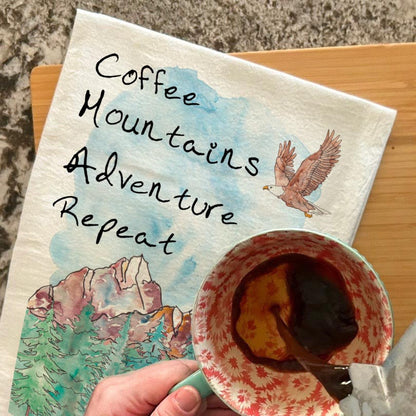 Coffee
Mountains
Adventure
Repeat